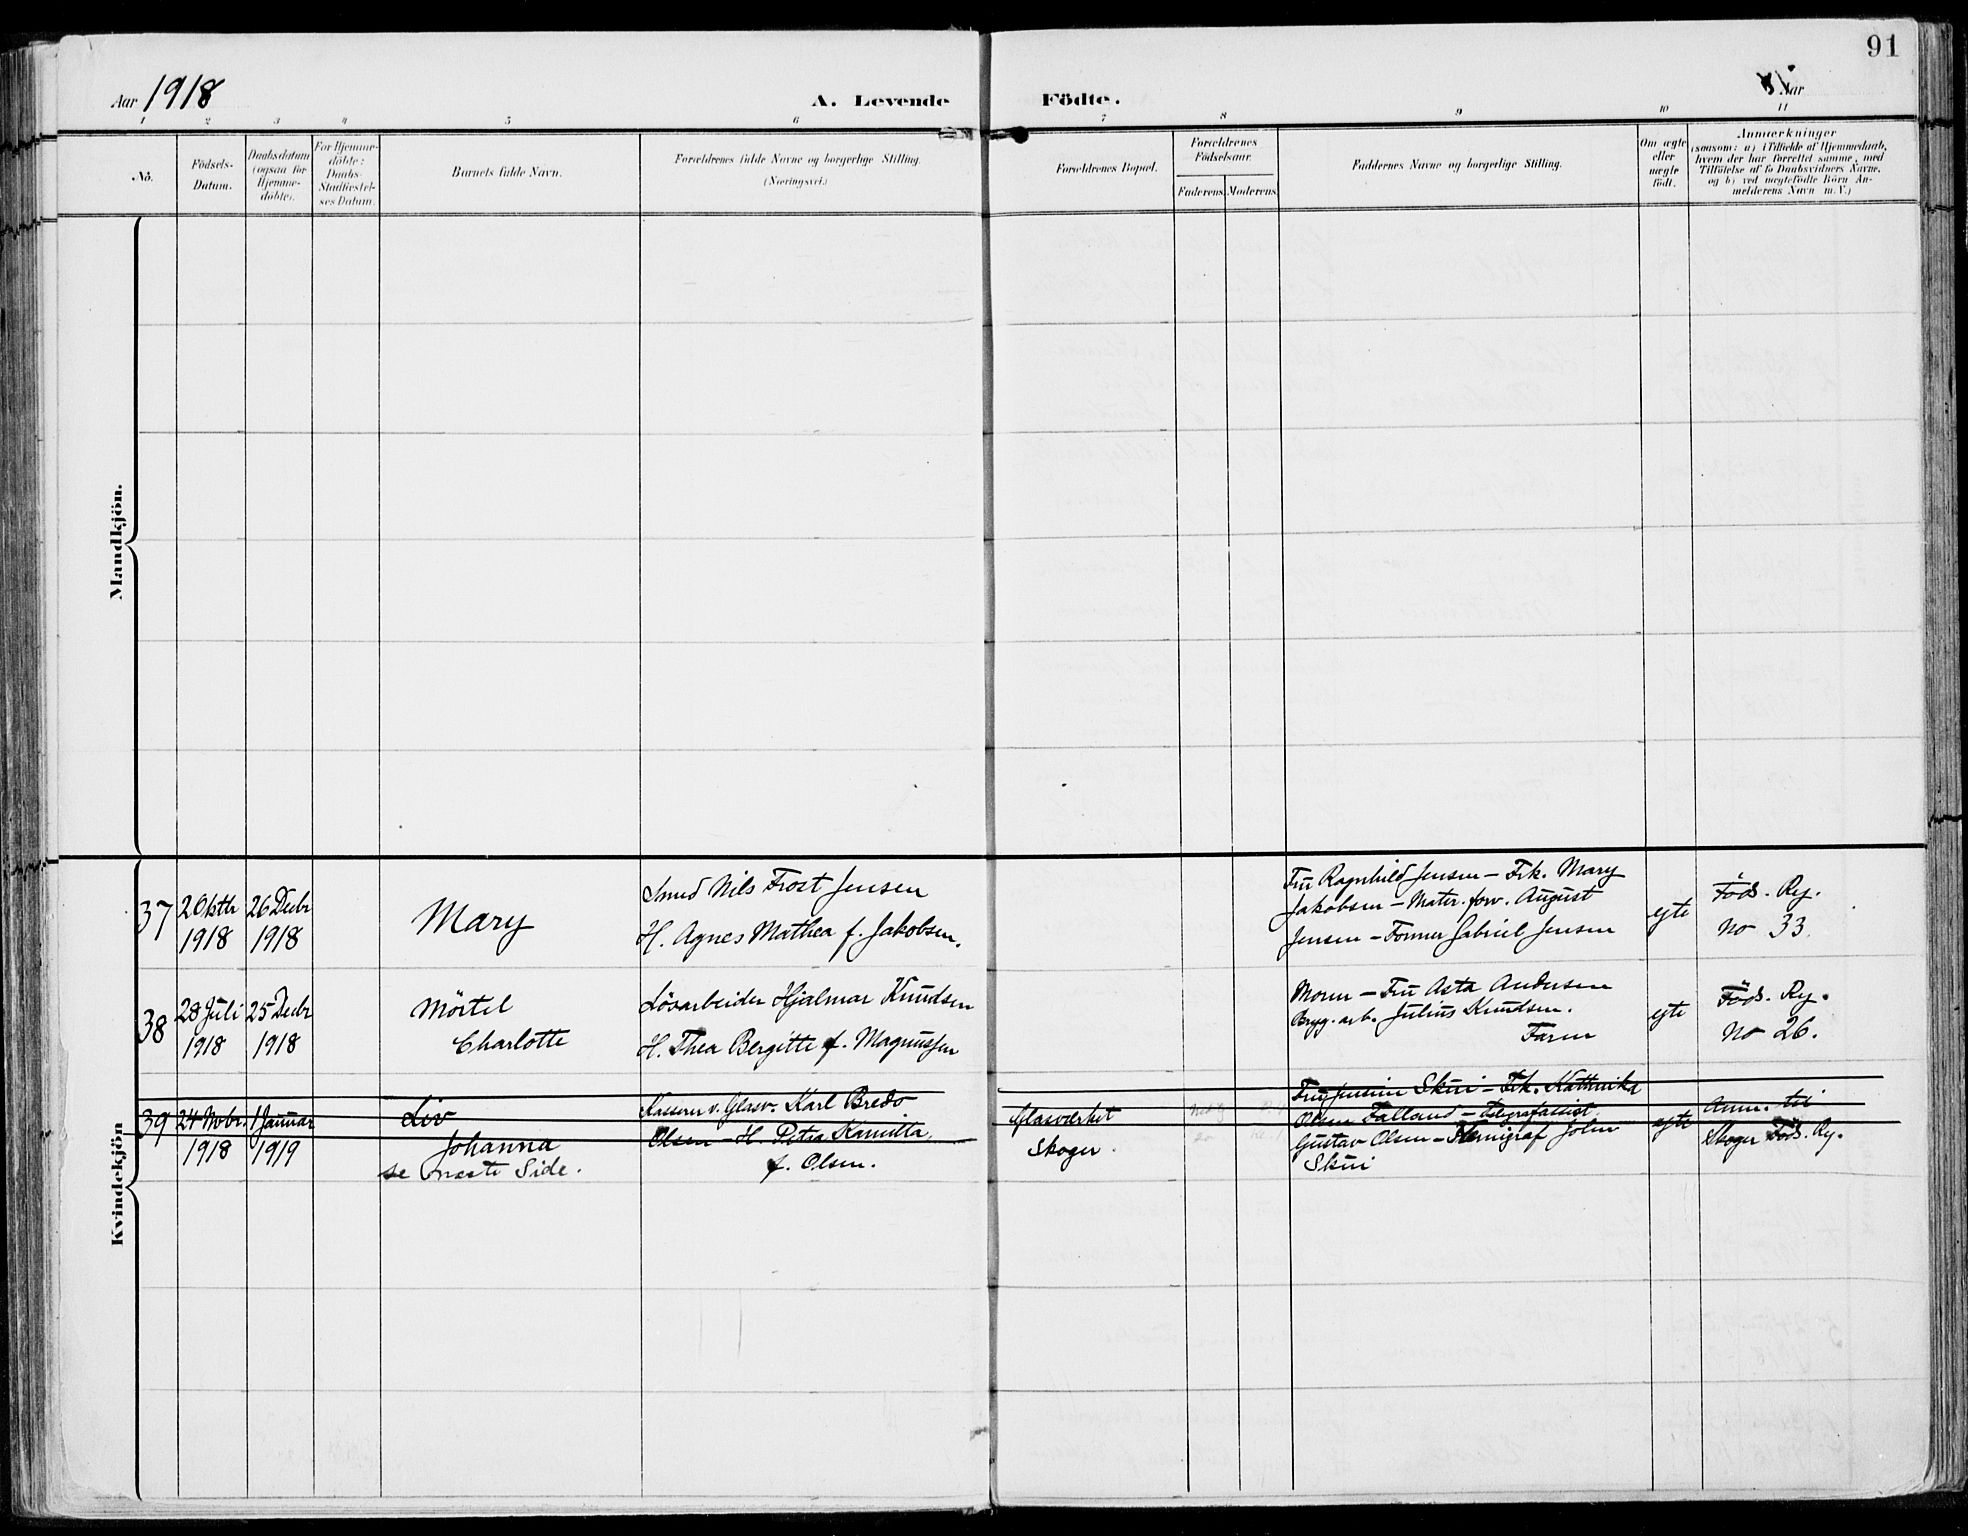 91
Aar 1918
A. Levende Födte.
Aar
1 2 3 4 5 6 7 8 9 10 11
No.
Födsels-
Datum.
Daabsdatum
(ogsaa for
Hjemme-
döbte).
For Hjemme-
döbte:
Daabs-
Stadfæstel-
ses Datum.
Barnets fulde Navn.
Forældrenes fulde Navne og borgerlige Stilling.
(Næringsvei.)
Forældrenes Bopæl.
Forældrenes
Födselsaar.
Faderens. Moderens.
Faddernes Navne og borgerlige Stilling.
Om ægte
eller
uægte
födt.
Anmærkninger
(saasom: a) i Tilfælde af Hjemmedaab,
hvem der har forrettet samme, med
Tilföielse af to Daabsvidners Navne,
og b) ved uægtefödte Börn An-
melderens Navn m. V.)
Mandkjön.
Kvindekjön
37
2 Oktbr
1918
26 Decbr
1918
Mary
Smed Nils Frost Jensen
H. Agnes Mathea f. Jakobsen.
Fru Ragnhild Jensen – Frk. Mary
Jakobsen – Mater. forv. August
Jensen – Former Gabriel Jensen
egte
Föds. Rg.
No 33.
38
28 Juli
1918
25 Decbr
1918
Mörtel
Charlotte
Lösarbeider Hjalmar Knudsen
H. Thea Bergitte f. Magnussen
Moren – Fru Asta Andersen
Bryg. arb. Julius Knudsen.
Faren
egte
Föds. Rg.
No 26.
39
24 Nobr.
1918
1 Januar
1919
Liv
Johanna
se næste Side.
Kasserer v. Glasv. Karl Bredo
Olsen – H. Petra Kamilla
f. Olsen.
Glasværket
Skoger
Fru Jensine Skui – Frk. Kathinka
Olsen Falland – Telegrafassist.
Gustav Olsen – Kemigraf John
Skui
egte
Anm. til
Skoger Föds. Rg.